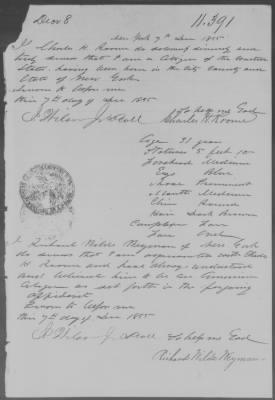 Decr 8
11.391
New York 7th Dec 1855
I Charles H. Roome do solemnly sincerely and
truly swear that I am a Citizen of the United
States, having been born in the City County and
State of New York
Sworn to before me
this 7th day of Dec 1855
So help me God
Charles H. Roome
Age 31 years
Stature 5 feet 10
Forehead Medium
Eyes Blue
Nose Prominent
Mouth Medium
Chin Round
Hair Dark Brown
Complexion Fair
Face Oval
I Richard Milds Weyman of New York
do swear that I am acquainted with Charles
H Roome and
and believe him to be an American
Citizen as set forth in the forgoing
affidavit
Sworn to before me
this 7th day of Dec 1855
So help me God
Richard Milds Weyman